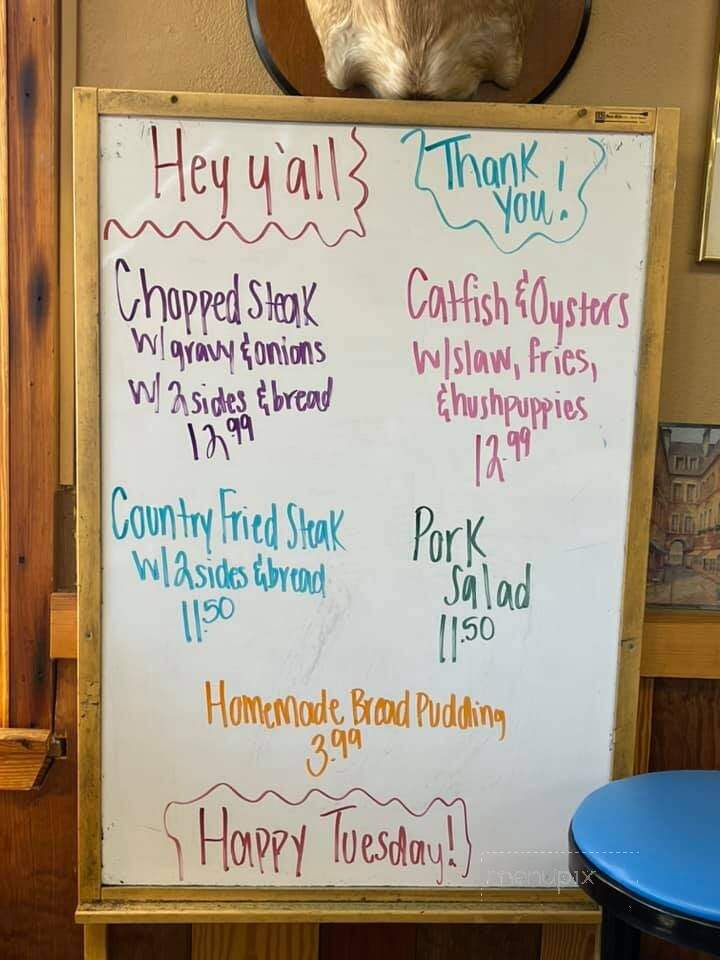 Hey y'all
Thank
you!
Chopped Steak
w/ gravy & onions
w/ 2 sides & bread
12.99
Catfish & Oysters
w/slaw, fries,
& hushpuppies
12.99
Country Fried Steak
w/ 2 sides & bread
11.50
Pork
Salad
11.50
Homemade Bread Pudding
3.99
Happy Tuesday!
menupix